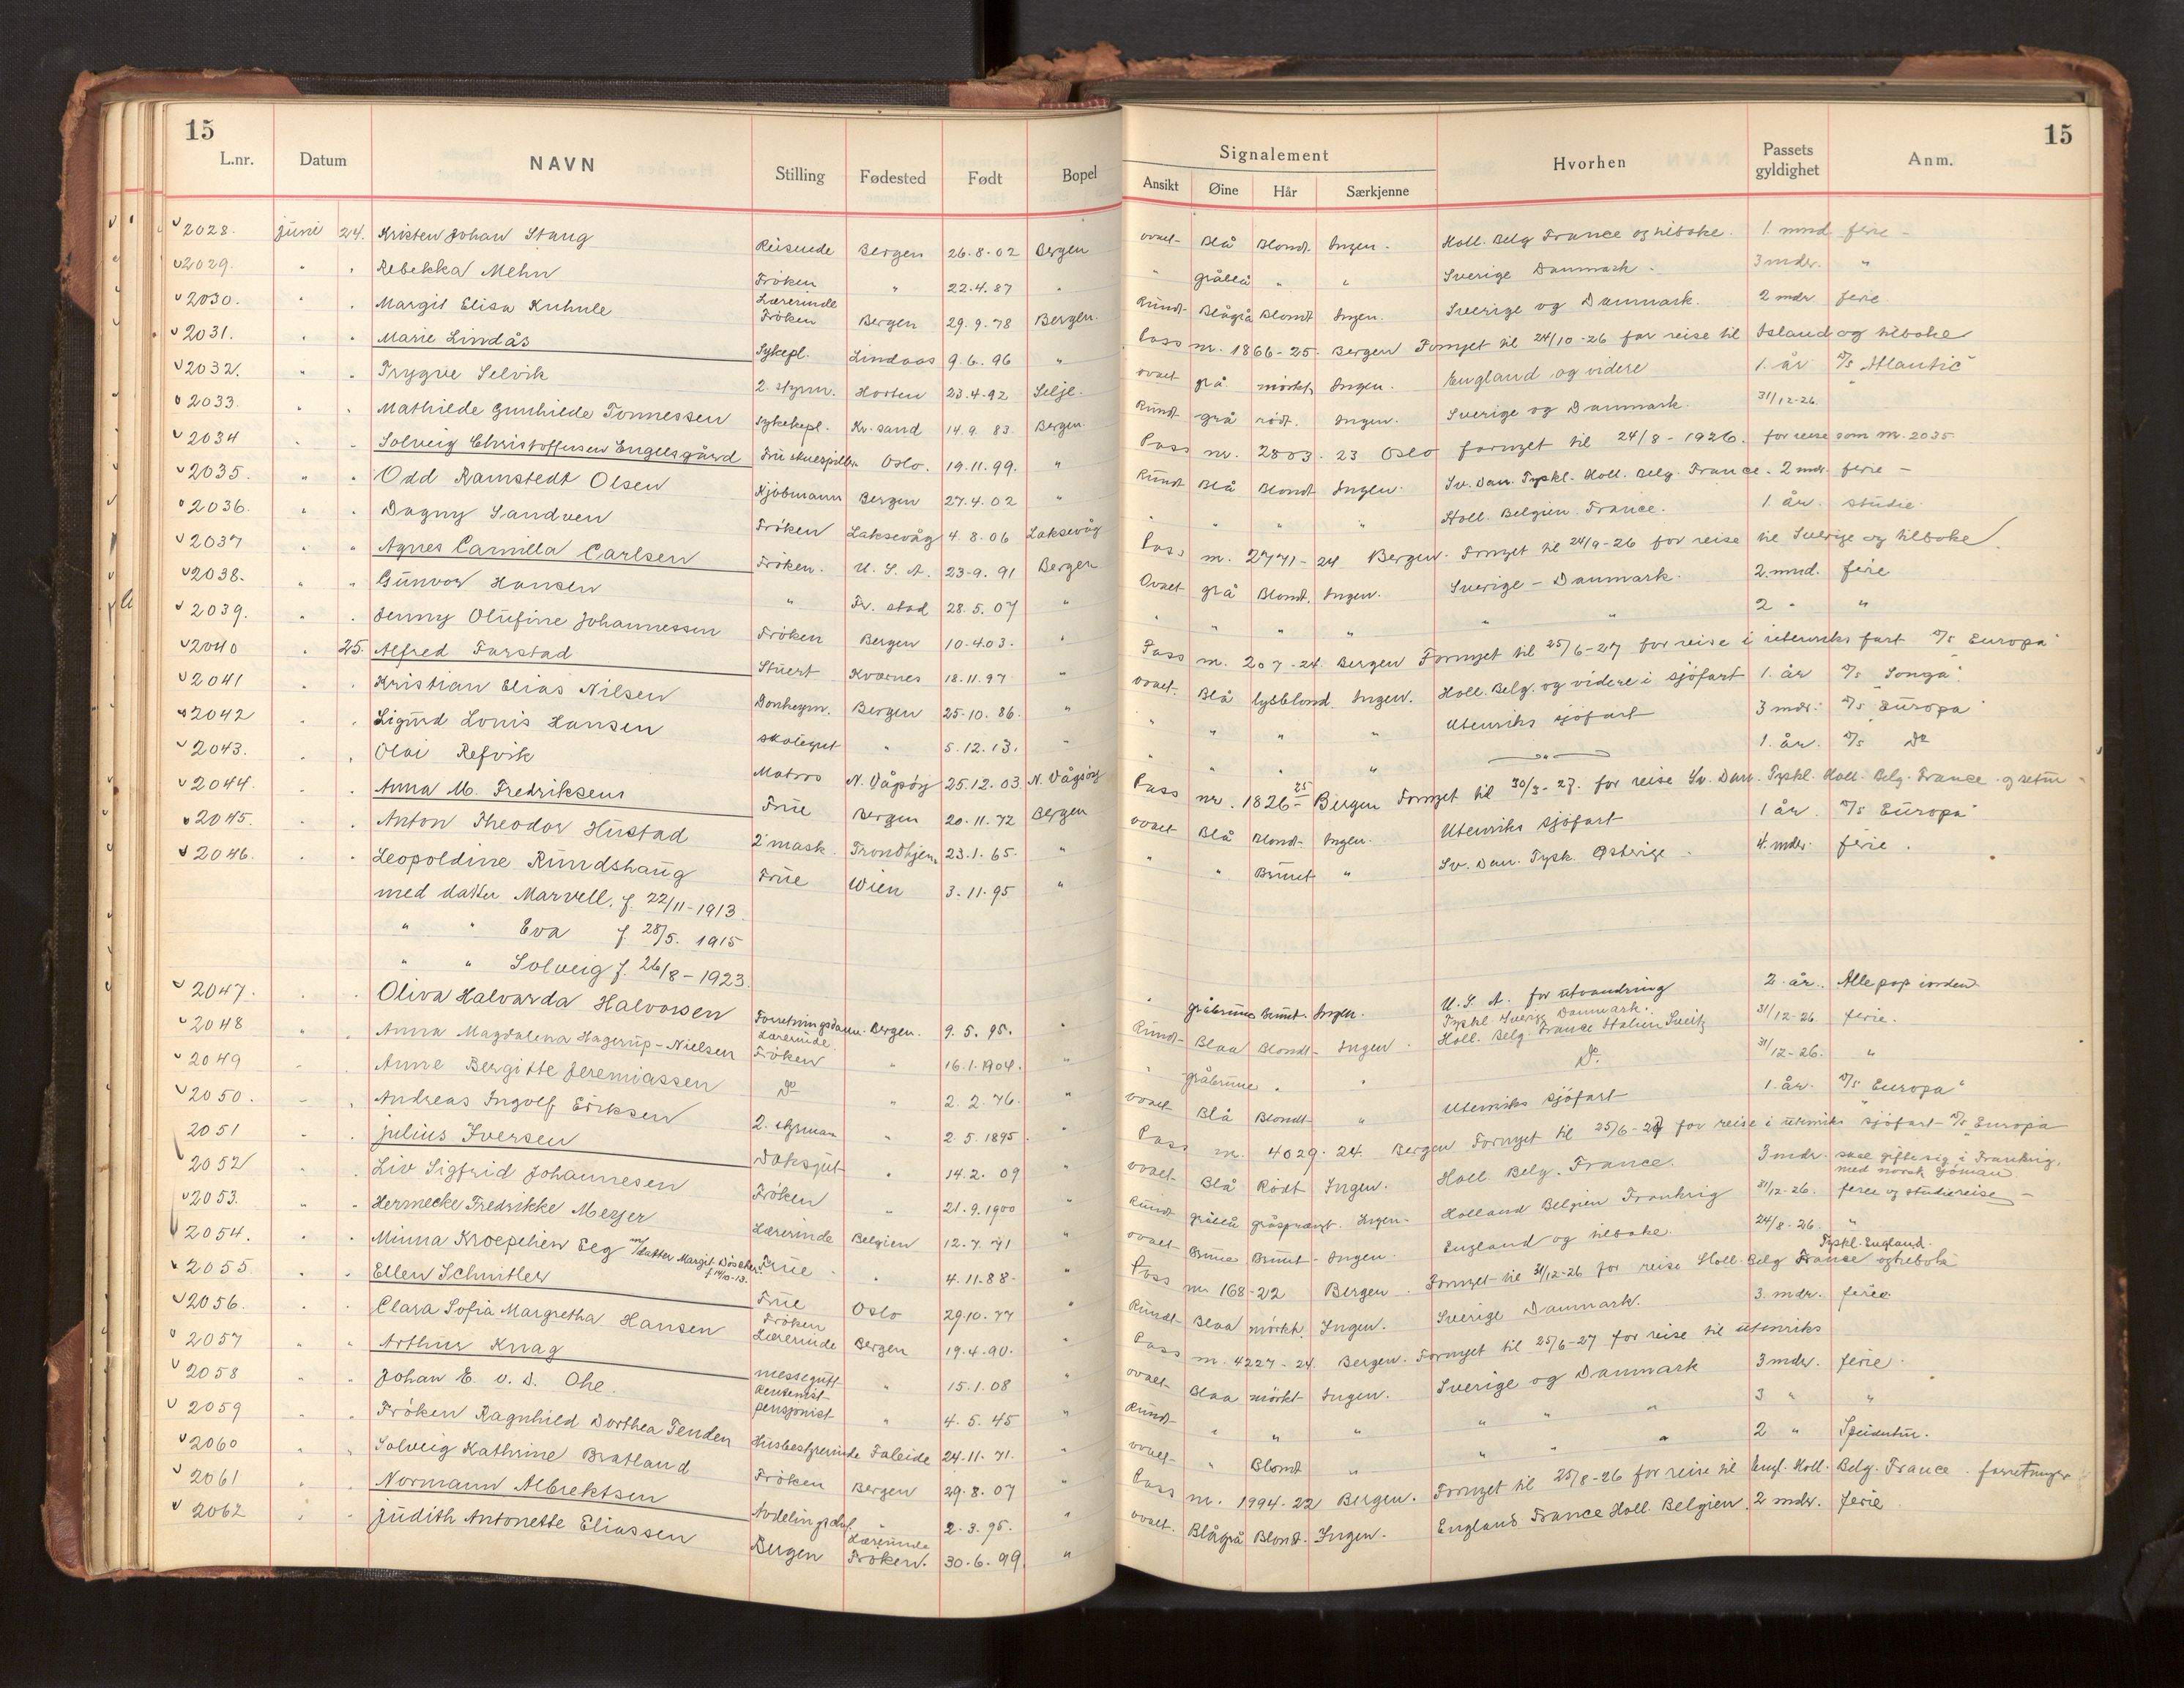 15
15
L.nr. Datum NAVN Stilling Fødested Født Bopel
Signalement Hvorhen Passets gyldighet Anm.
Ansikt Øine Hår Særkjenne
2028. juni 24. Kristen Johan Stang Reisende Bergen 26.8.02 Bergen ovael- Blå Blond. Ingen. Holl. Belg France og tilbake. 1. mnd ferie -
2029. " " Rebekka Mehn Frøken " 22.4.87 " " gråblå " " Sverige Danmark. 3 mdr. "
2030. " " Margit Elisa Kuhnle Lærerinde Frøken Bergen 29.9.78 Bergen. Rund- Blågrå Blond Ingen. Sverige og Danmark. 2 mdr. ferie.
2031. " " Marie Lindås Sykepl. Lindaas 9.6.96 " Pass nr. 1866-25. Bergen Fornyet til 24/10-26 for reise til Island og tilbake
2032. " " Trygve Selvik 2. styrm. Horten 23.4.92 Selje. ovael grå mørkt Ingen. England og videre 1. år D/S "Atlantic"
2033. " " Mathilde Gunhilde Tonnessen Sykepl. Kr. sand 14.9.83. Bergen. Rund- grå rødt. Ingen. Sverige og Danmark. 31/12-26.
2034 " " Solveig Christoffersen Engelsgård Frue skuespiller Oslo. 19.11.99. " Pass nr. 2803. 23 Oslo fornyet til 24/8-1926. for reise som nr. 2035
2035. " " Odd Ramstedt Olsen Kjøbmann Bergen 27.4.02 " Rund Blå Blondt Ingen. Sv. Dan. Tyskl. Holl. Belg. France. 2 mdr. ferie -
2036. " " Dagny Sandven Frøken Laksevåg 4.8.06 Laksevåg " " " " Holl. Belgien. France. 1. år. studie
2037 " " Agnes Camilla Carlsen Frøken. U.S.A. 23-9.91 Bergen Pass nr. 2771-24 Bergen. Fornyet til 24/9-26 for reise til Sverige og tilbake.
2038. " " Gunvor Hansen " Fr. stad 28.5.07 " Ovael grå Blond. Ingen. Sverige - Danmark. 2. mnd. ferie
2039. " " Jenny Olufine Johannessen Frøken Bergen 10.4.03. " " " " " " " 2 " "
2040 " 25. Alfred Farstad Stuert Kvernes 18.11.97 " Pass nr. 207-24. Bergen Fornyet til 25/6-27 for reise i utenriks fart D/S "Europa"
2041 " " Kristian Elias Nilsen Donkeym. Bergen 25.10.86. " ovael- Blå lysblond Ingen. Holl. Belg. og videre i sjøfart 1. år D/S "Songa".
2042 " " Sigurd Louis Hansen skolegut " 5.12.13. " " " " " Utenriks sjøfart 3 mdr. D/S "Europa"
2043. " " Olai Refvik Matros N. Vågsøy 25.12.03. N. Vågsøy " " " " " 1. år. D/S Do
2044. " " Anna M. Fredriksen Frue Bergen 20.11.72 Bergen Pass nr. 1826-25 Bergen Fornyet til 30/9-27. for reise Sv. Dan. Tyskl. Holl. Belg. France. og retur -
2045. " " Anton Theodor Hustad 2 mask. Trondhjem 23.1.65. " ovael Blå Blond- Ingen. Utenriks sjøfart 1 år. D/S "Europa"
2046. " " Leopoldine Rundshaug Frue Wien 3.11.95 " " " Brunet " Sv. Dan. Tysk. Østerige. 4. mdr. ferie.
med datter Marvell. f. 22/11-1913.
" " Eva f. 28/5. 1915
" " Solveig f. 26/8-1923.
2047. " " Oliva Halvarda Halvorsen Forretningsdame. Bergen. 9.5.95. " " gråbrune brunt. Ingen. U.S.A. for utvandring 2. år. Alle pop. i orden
2048 " " Anna Magdalena Hagerup-Nielsen Lærerinde. Frøken " 16.1.1904. " Rund- Blaa Blond- Ingen. Tyskl Sverige Danmark. Holl. Belg. France Italien Sveitz 31/12-26. ferie.
2049 " " Anne Bergitte Jeremiassen Do " 2.2.76. " " gråbrune " " Do. 31/12-26. "
2050. " " Andreas Ingolf Eriksen 2. styrman " 2.5.1895. " ovael Blå Blond- " Utenriks sjøfart 1. år. D/S "Europa"
2051 " " Julius Iversen Dæksgut " 14.2.09 " Pass nr. 4029. 24. Bergen Fornyet til 25/6-27 for reise i utenriks sjøfart D/S "Europa
2052 " " Liv Sigfrid Johannesen Frøken " 21.9.1900 " ovael- Blå Rødt Ingen. Holl. Belg. France. 3 mdr. skal gifte sig i Frankrig, med norsk sjöman
2053. " " Hermecke Fredrikke Meyer Lærerinde Belgien 12.7.71 " Rund gråblå gråsprengt. Ingen. Holland Belgien Frankrig 31/12-26. ferie og studiereise -
2054. " " Minna Kroepelien Eeg m/datter Margit Döscher f 14/10-13. Frue " 4.11.88. " ovael- Brune Brunt- Ingen. England og tilbake. 24/8-26. "
2055 " " Ellen Schnitler Frue Oslo 29.10.77 " Pass nr. 168-22 Bergen. Fornyet til 31/12-26 for reise Holl. Belg France Tyskl. England. og tilbake
2056. " " Clara Sofia Margretha Hansen Frøken Lærerinde Bergen 19.4.90. " Rund- Blaa mørkt. Ingen. Sverige Danmark. 3. mdr. ferie
2057 " " Arthur Knag messegutt " 15.1.08 " Pass nr. 4227-24. Bergen. Fornyet til 25/6-27 for reise til utenriks
2058 " " Johan E. v. d. Ohe. Rentenist pensjonist " 4.5.45 " ovael- Blaa mørkt Ingen. Sverige og Danmark 3 mdr. ferie.
2059 " " Frøken Ragnhild Dorthea Tenden Husbestyrerinde Faleide 24.11.71. " Rund- " " " " " " 3 " "
2060 " " Solveig Kathrine Bratland Frøken Bergen 29.8.07 " ovael- " Blond " " " " 2 " Speidertur.
2061 " " Normann Albrektsen Avdelingschef. " 2.3.95. " Pass nr. 1994-22 Bergen. Fornyet til 25/8-26 for reise til Engl. Holl. Belg. France. forretninger
2062 " " Judith Antonette Eliassen Bergen Lærerinde Frøken. 30.6.99. " ovael. Blågrå Blond. Ingen. England France Holl. Belgien. 2 mdr. ferie